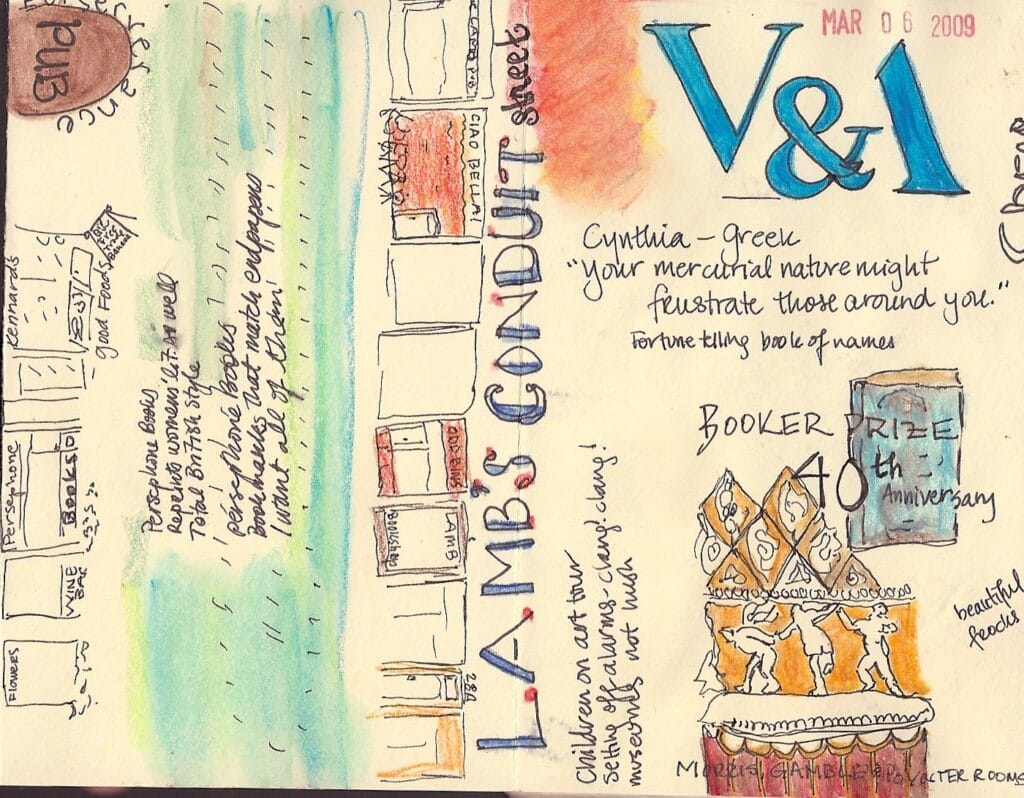 MAR 06 2009
V&A
Cynthia – Greek
"Your mercurial nature might
frustrate those around you."
Fortune telling book of names
BOOKER PRIZE
40th
Anniversary
beautiful
frocks
MORRIS, GAMBLE & POYNTER ROOMS
Children on art tour
Setting off alarms – clang! clang! clang!
museumly not hush
LAMB'S CONDUIT street
CIAO BELLA!
LAMB
BOOKSHOP
PUB
Persephone Books
Reprints women's lit as well
Total British Style
persephone Books
Bookmarks that match endpapers
I want all of them!
Kennards
good Foods
Persephone
BOOKS
WINE
BAR
Flowers